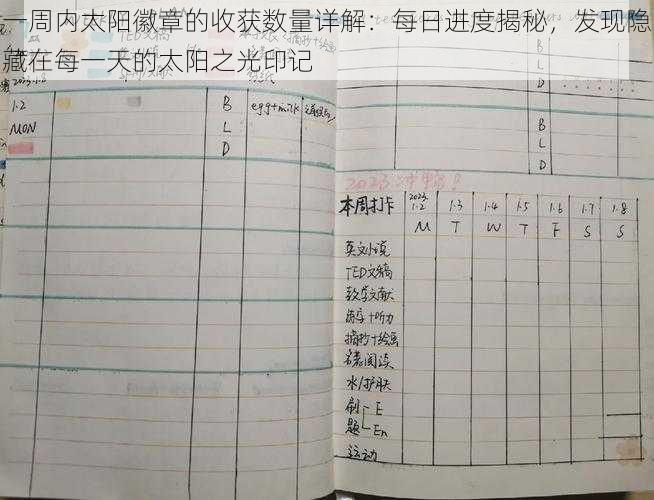 一周内太阳徽章的收获数量详解：每日进度揭秘，发现隐
藏在每一天的太阳之光印记
1.2
MON
B
L
D
egg+milk
B
L
D
2023冲鸭！
本周打卡
2023.
1.2 1.3 1.4 1.5 1.6 1.7 1.8
M T W T F S S
英文小说
TED文稿
教学文献
练字+听力
摘抄+绘画
名著阅读
水/护肤
刷 - E
题 - En
运动